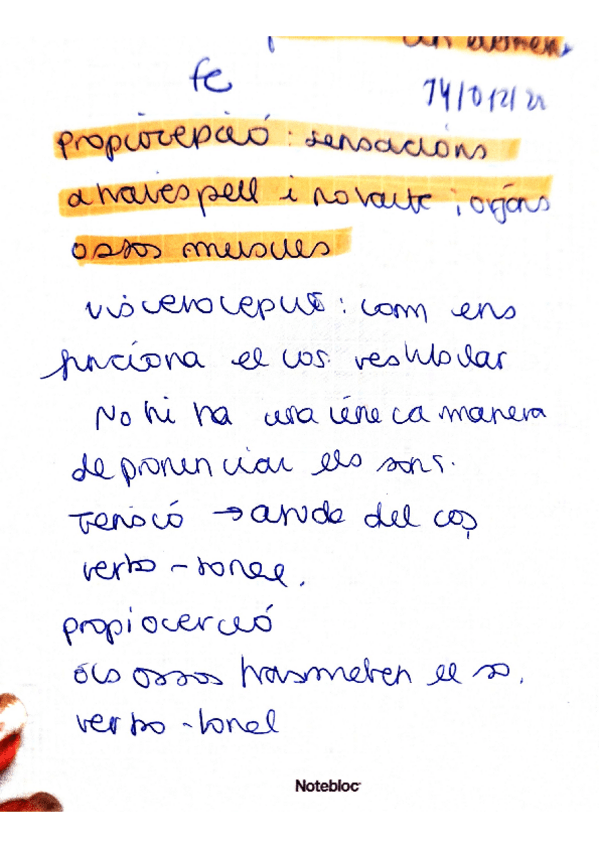 fe
propiocepció : sensacions
a traves pell i no vaste, orgáns
ossos muscles
viscerocepció : com ens
funciona el cos. vestibular
No hi ha una única manera
de pronunciar els sons.
Tensió → ajuda del cos
verbo - tonal.
propiocepció
els ossos trasmeten el so.
verbo - tonal
Notebloc